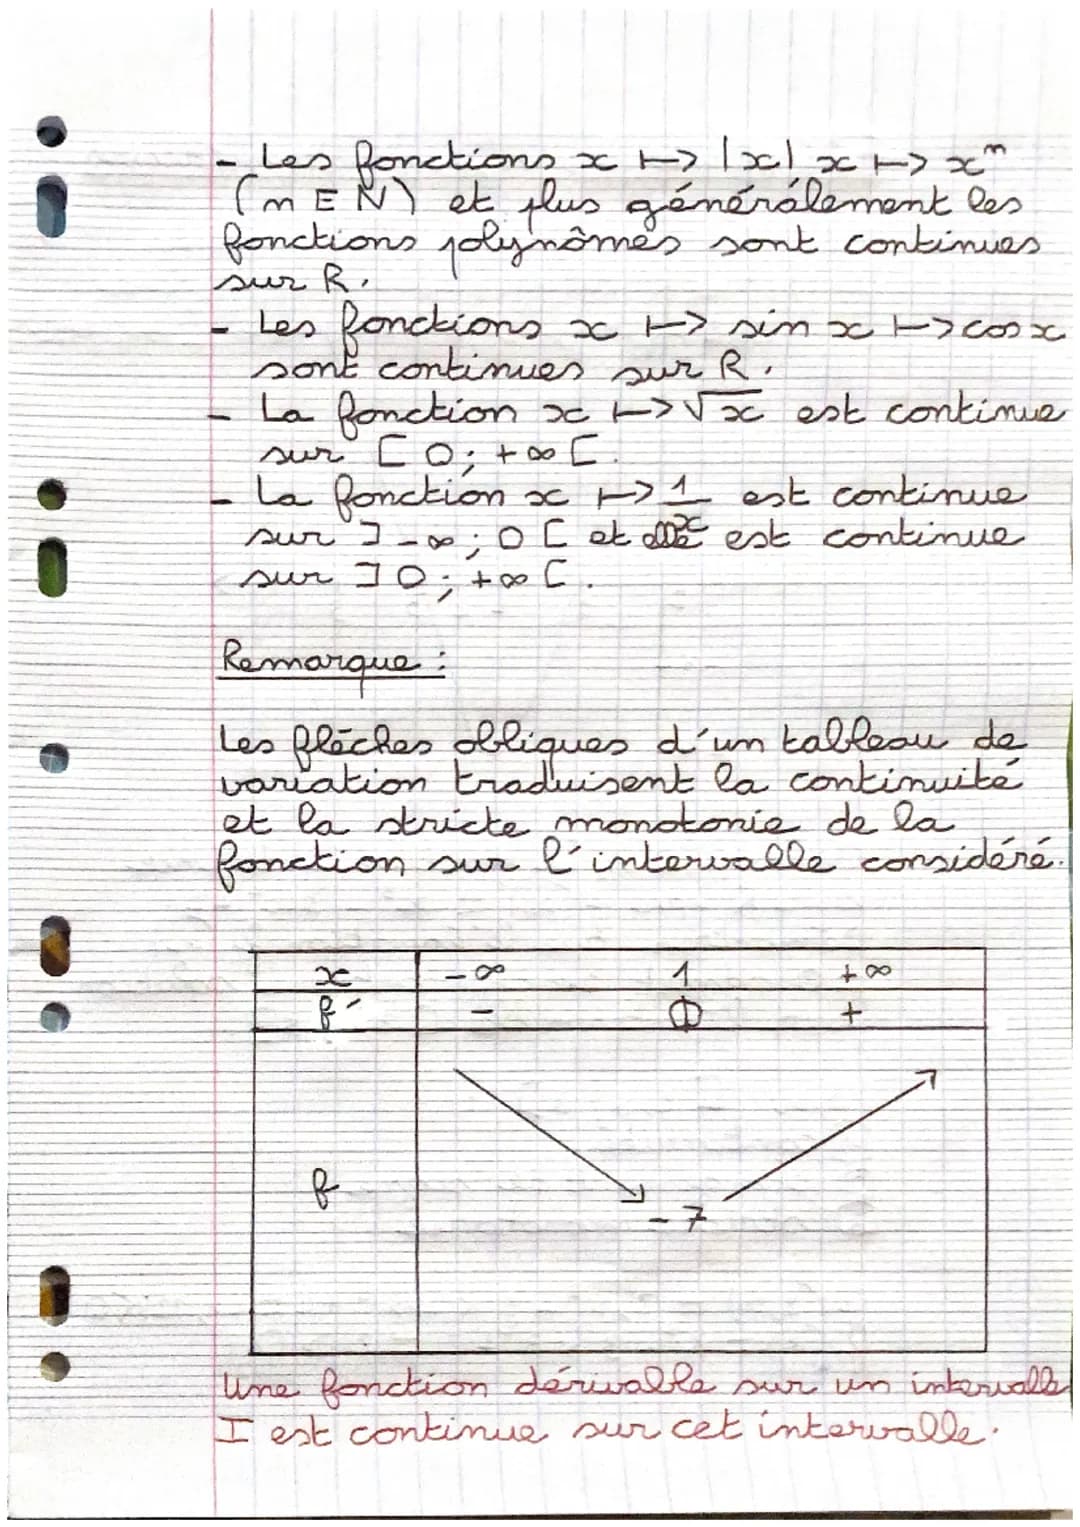 - Les fonctions x ↦ |x| x ↦ xⁿ
(n ∈ N) et plus générálement les
fonctions polynômes sont continues
sur R.
- Les fonctions x ↦ sin x ↦ cos x
sont continues sur R.
- La fonction x ↦ √x est continue
sur [0; +∞[.
- La fonction x ↦ 1/x est continue
sur ]-∞; 0[ et elle est continue
sur ]0; +∞[.
Remarque :
Les flèches obliques d'un tableau de
variation traduisent la continuité
et la stricte monotonie de la
fonction sur l'intervalle considéré.
x -∞ 1 +∞
f' - 0 +
f -7
Une fonction dérivable sur un intervalle
I est continue sur cet intervalle.